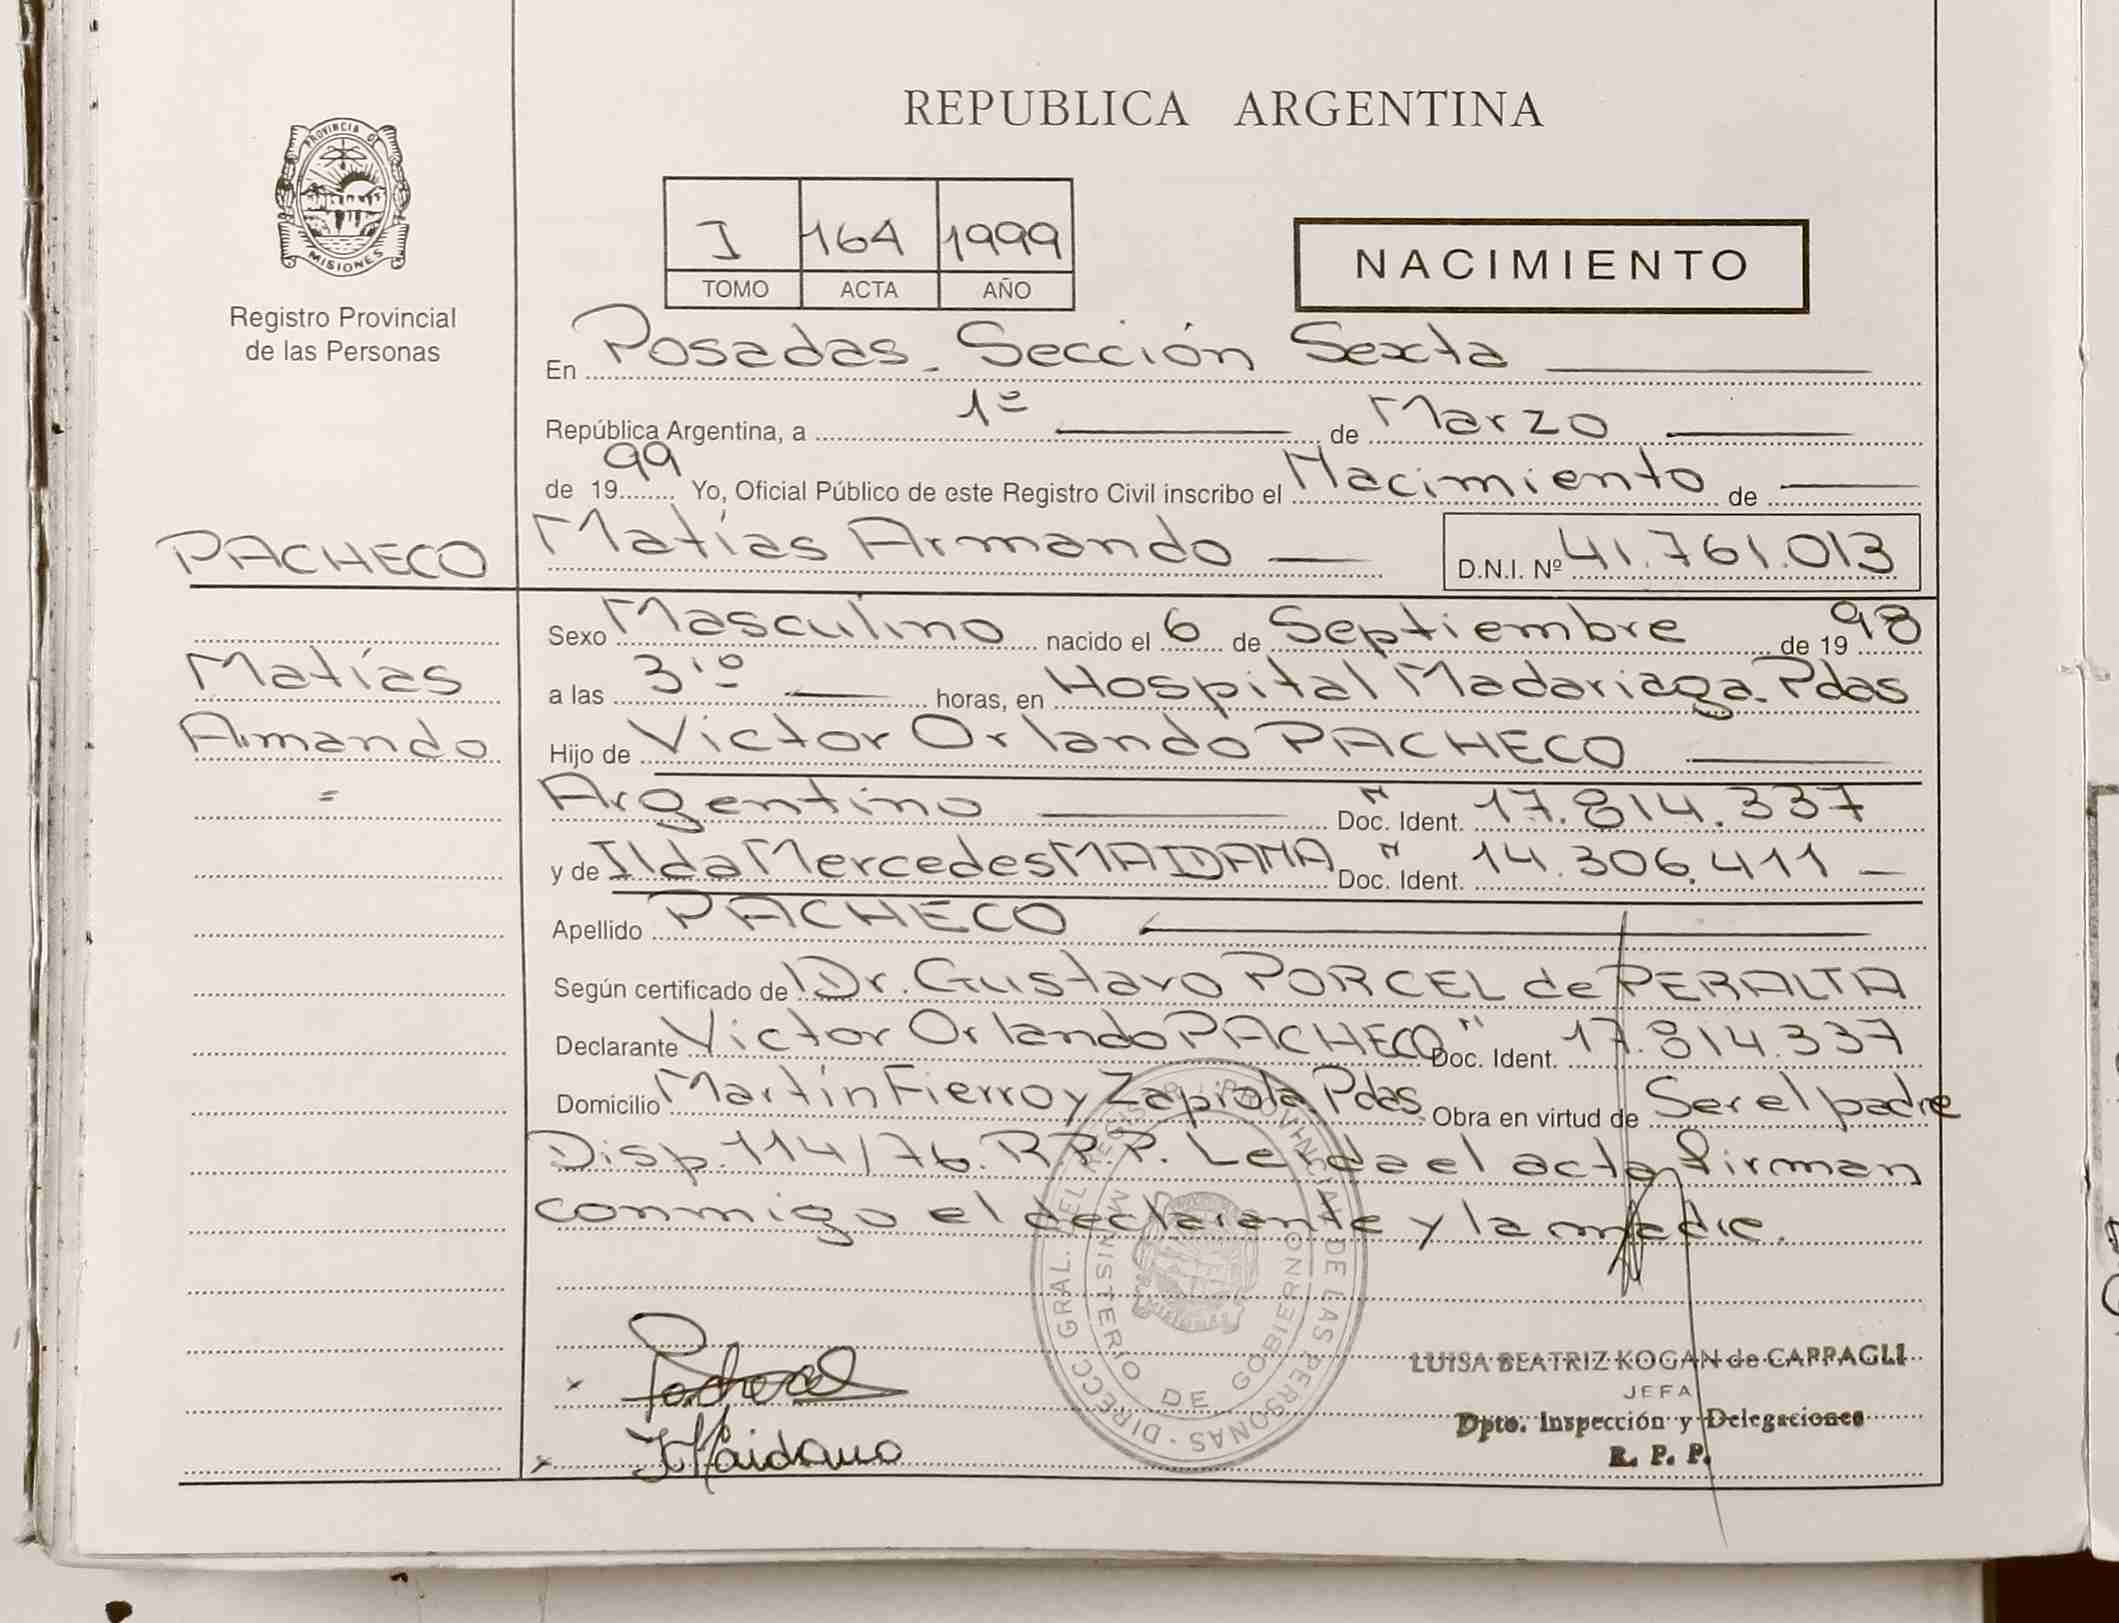 REPUBLICA ARGENTINA
PROVINCIA DE
MISIONES
Registro Provincial
de las Personas
I 164 1999
TOMO ACTA AÑO
NACIMIENTO
En Posadas - Sección Sexta
República Argentina, a 1º de Marzo
de 1999 Yo, Oficial Público de este Registro Civil inscribo el Nacimiento de
PACHECO Matías Armando D.N.I. Nº 41.761.013
Sexo Masculino nacido el 6 de Septiembre de 1998
Matías
a las 3'º horas, en Hospital Madariaga. Pdas
Armando
Hijo de Victor Orlando PACHECO
=
Argentino Doc. Ident. N 17.814.337
y de Ilda Mercedes MAIDANA Doc. Ident. N 14.306.411 -
Apellido PACHECO
Según certificado de Dr. Gustavo PORCEL de PERALTA
Declarante Victor Orlando PACHECO Doc. Ident. N 17.814.337
Domicilio Martín Fierro y Zapiola. Pdas Obra en virtud de Ser el padre
Disp. 114/76. R.P.P. Leída el acta firman
conmigo el declarante y la madre.
DIRECC. GRAL. DEL REGISTRO PROVINCIAL DE LAS PERSONAS
MINISTERIO DE GOBIERNO
x Pacheco
x I Maidana
LUISA BEATRIZ KOGAN de CAPPAGLI
JEFA
Dpto. Inspección y Delegaciones
R. P. P.